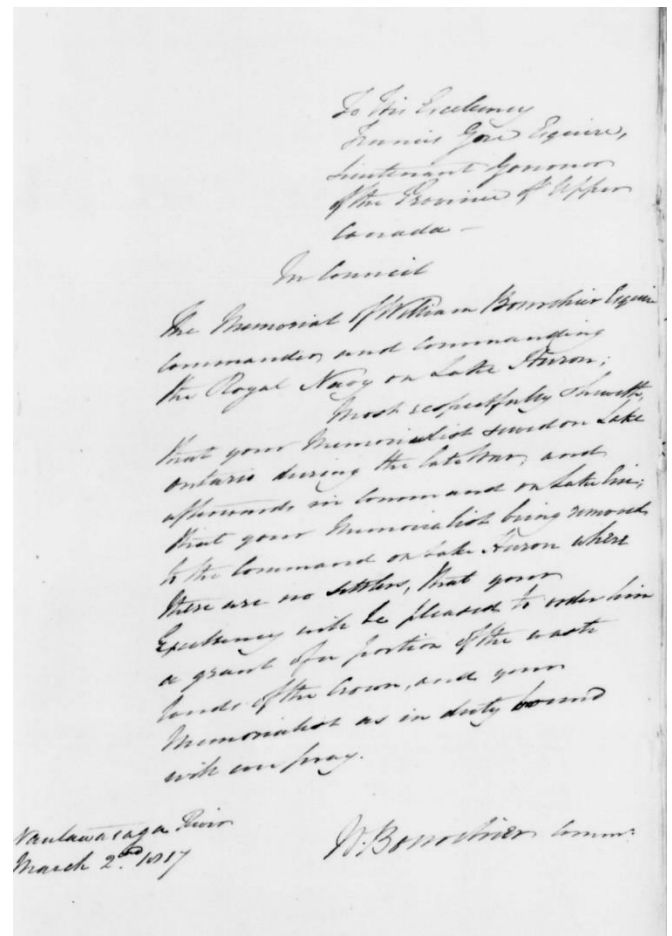 To His Excellency
Francis Gore Esquire,
Lieutenant Governor
of the Province of Upper
Canada —
In Council
The Memorial of William Bourchier Esquire
Commander, and Commanding
the Royal Navy on Lake Huron;
Most respectfully Sheweth,
that your Memorialist served on Lake
Ontario during the late War, and
afterwards in Command on Lake Erie;
that your Memorialist being removed
to the Command on Lake Huron where
there are no settlers, that your
Excellency will be pleased to order him
a grant of a portion of the waste
lands of the Crown, and your
Memorialist as in duty bound
will ever pray.
Nautawasaga River
March 2nd. 1817
W. Bourchier Commr.